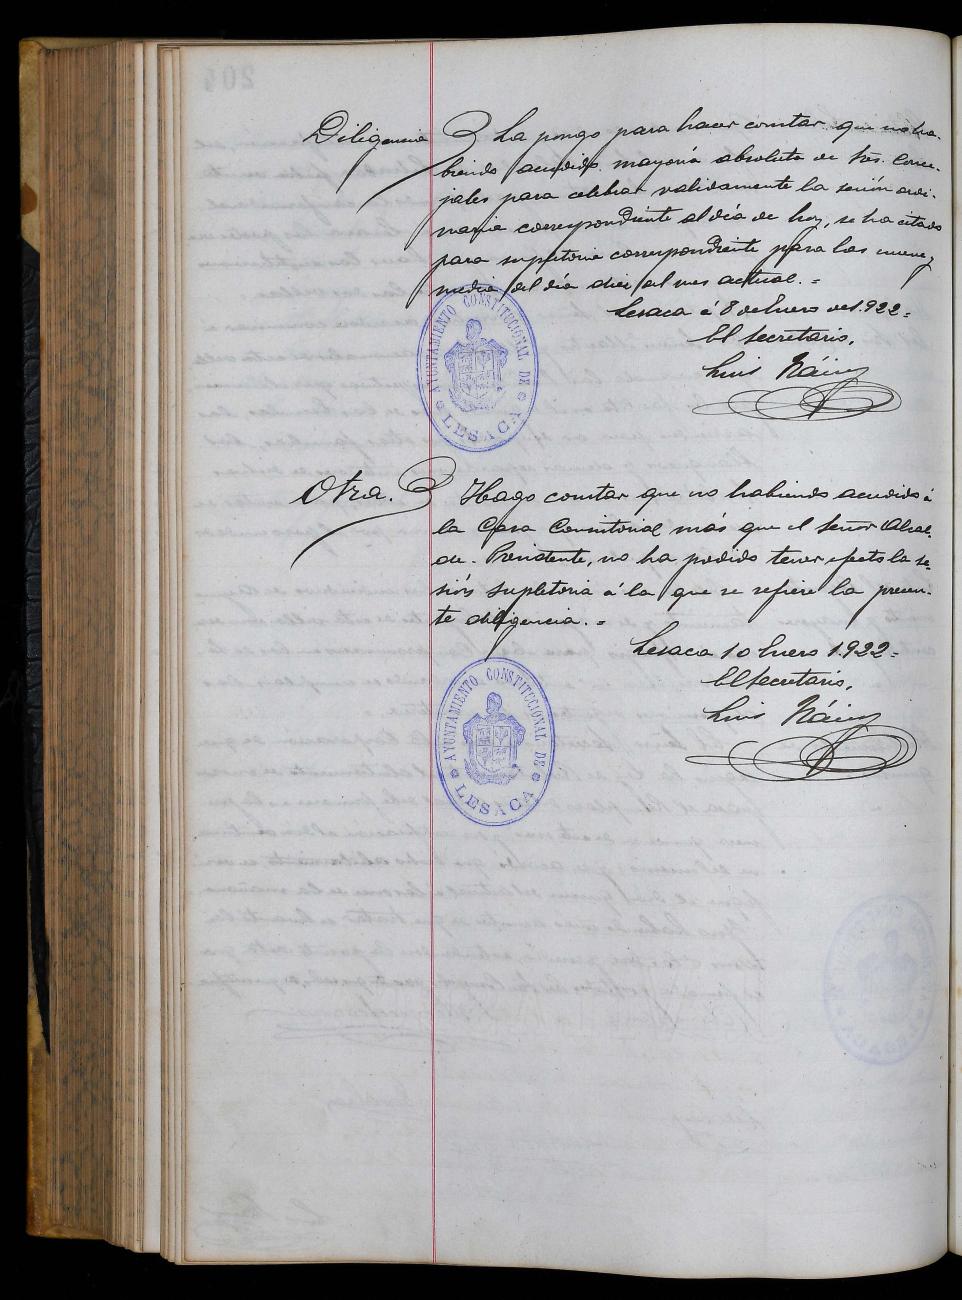 Diligencia } La pongo para hacer constar que no ha-
biendo acudido mayoría absoluta de Srs. Conce-
jales para celebrar validamente la sesión ordi-
naria correspondiente al día de hoy, se ha citado
para supletoria correspondiente para las nueve y
media del día diez del mes actual. =
Lesaca á 8 de Enero de 1.922 =
El Secretario,
Luis
AYUNTAMIENTO CONSTITUCIONAL DE
LESACA
Otra. } Hago constar que no habiendo acudido á
la Casa Consistorial más que el Señor Alcal-
de-Presidente, no ha podido tener efecto la se-
sión supletoria á la que se refiere la presen-
te diligencia. =
Lesaca 10 Enero 1.922 =
El Secretario,
Luis
AYUNTAMIENTO CONSTITUCIONAL DE
LESACA